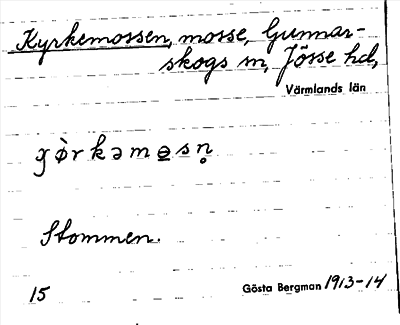 Kyrkemossen, mosse, Gunnar-
skogs sn, Jösse hd,
Värmlands län
Stommen.
Gösta Bergman 1913-14
15